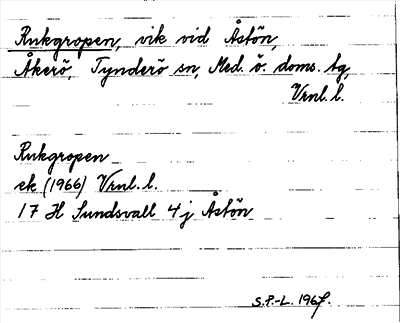 Rukgropen, vik vid Åstön,
Åkerö, Tynderö sn, Med. ö. doms. tg,
Vrnl. l.
Rukgropen
ek (1966) Vrnl. l.
17 H Sundsvall 4 j Åstön
S.P.-L. 1967.